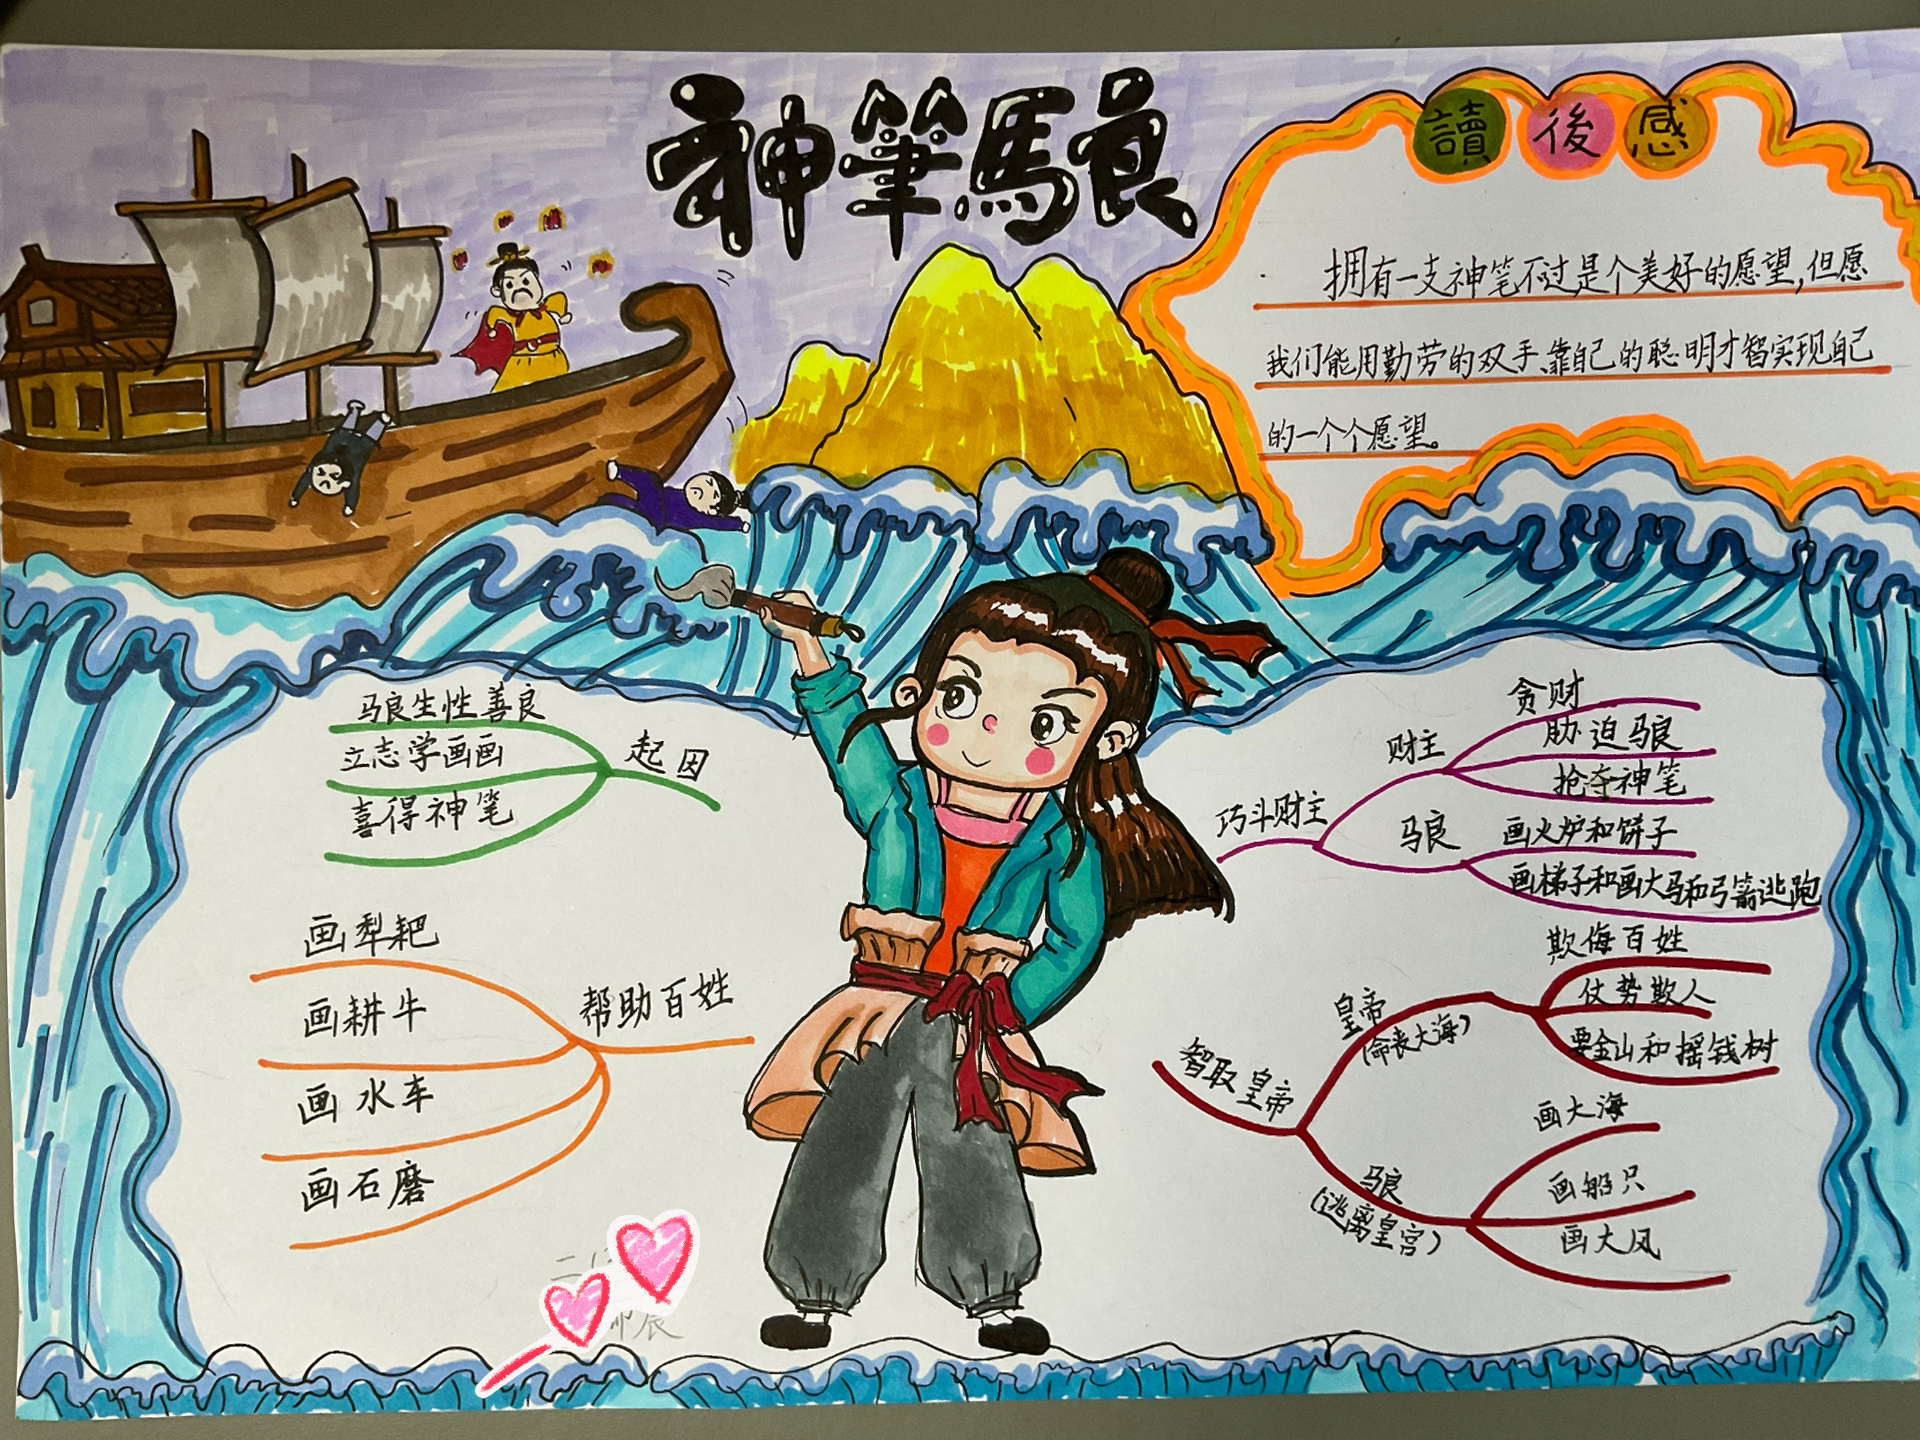 神筆馬良
讀後感
拥有一支神笔不过是个美好的愿望,但愿
我们能用勤劳的双手、靠自己的聪明才智实现自己
的一个个愿望。
起因
马良生性善良
立志学画画
喜得神笔
帮助百姓
画犁耙
画耕牛
画水车
画石磨
巧斗财主
财主
贪财
胁迫马良
抢夺神笔
马良
画火炉和饼子
画梯子和画大马和弓箭逃跑
智取皇帝
皇帝
(命丧大海)
欺侮百姓
仗势欺人
要金山和摇钱树
马良
(逃离皇宫)
画大海
画船只
画大风